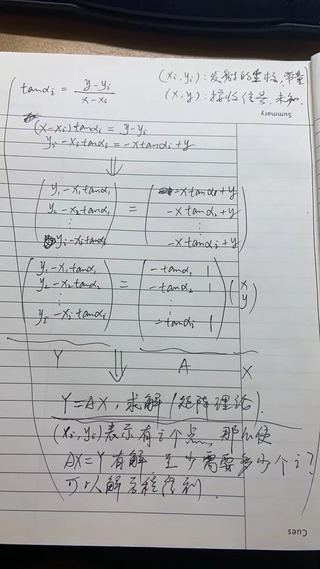 tanαi = (y-yi)/(x-xi)
(xi, yi): 发射的坐标, 常量
(x, y): 接收信号, 未知.
Summary
(x-xi)tanαi = y-yi
yi-xitanαi = -xtanαi+y
⇓
( y1-x1tanα1 ) = ( -xtanα1+y )
( y2-x2tanα2 ) ( -xtanα2+y )
⋮ ⋮
( yi-xitanαi ) ( -xtanαi+y )
( y1-x1tanα1 ) = ( -tanα1 1 ) ( x )
( y2-x2tanα2 ) ( -tanα2 1 ) ( y )
⋮ ⋮
( yi-xitanαi ) ( -tanαi 1 )
Y A X
⇓
Y=AX, 求解 (矩阵理论).
(xi, yi)表示有i个点, 那么使
AX=Y有解 至少需要多少个i?
可以解方程得到.
Cues